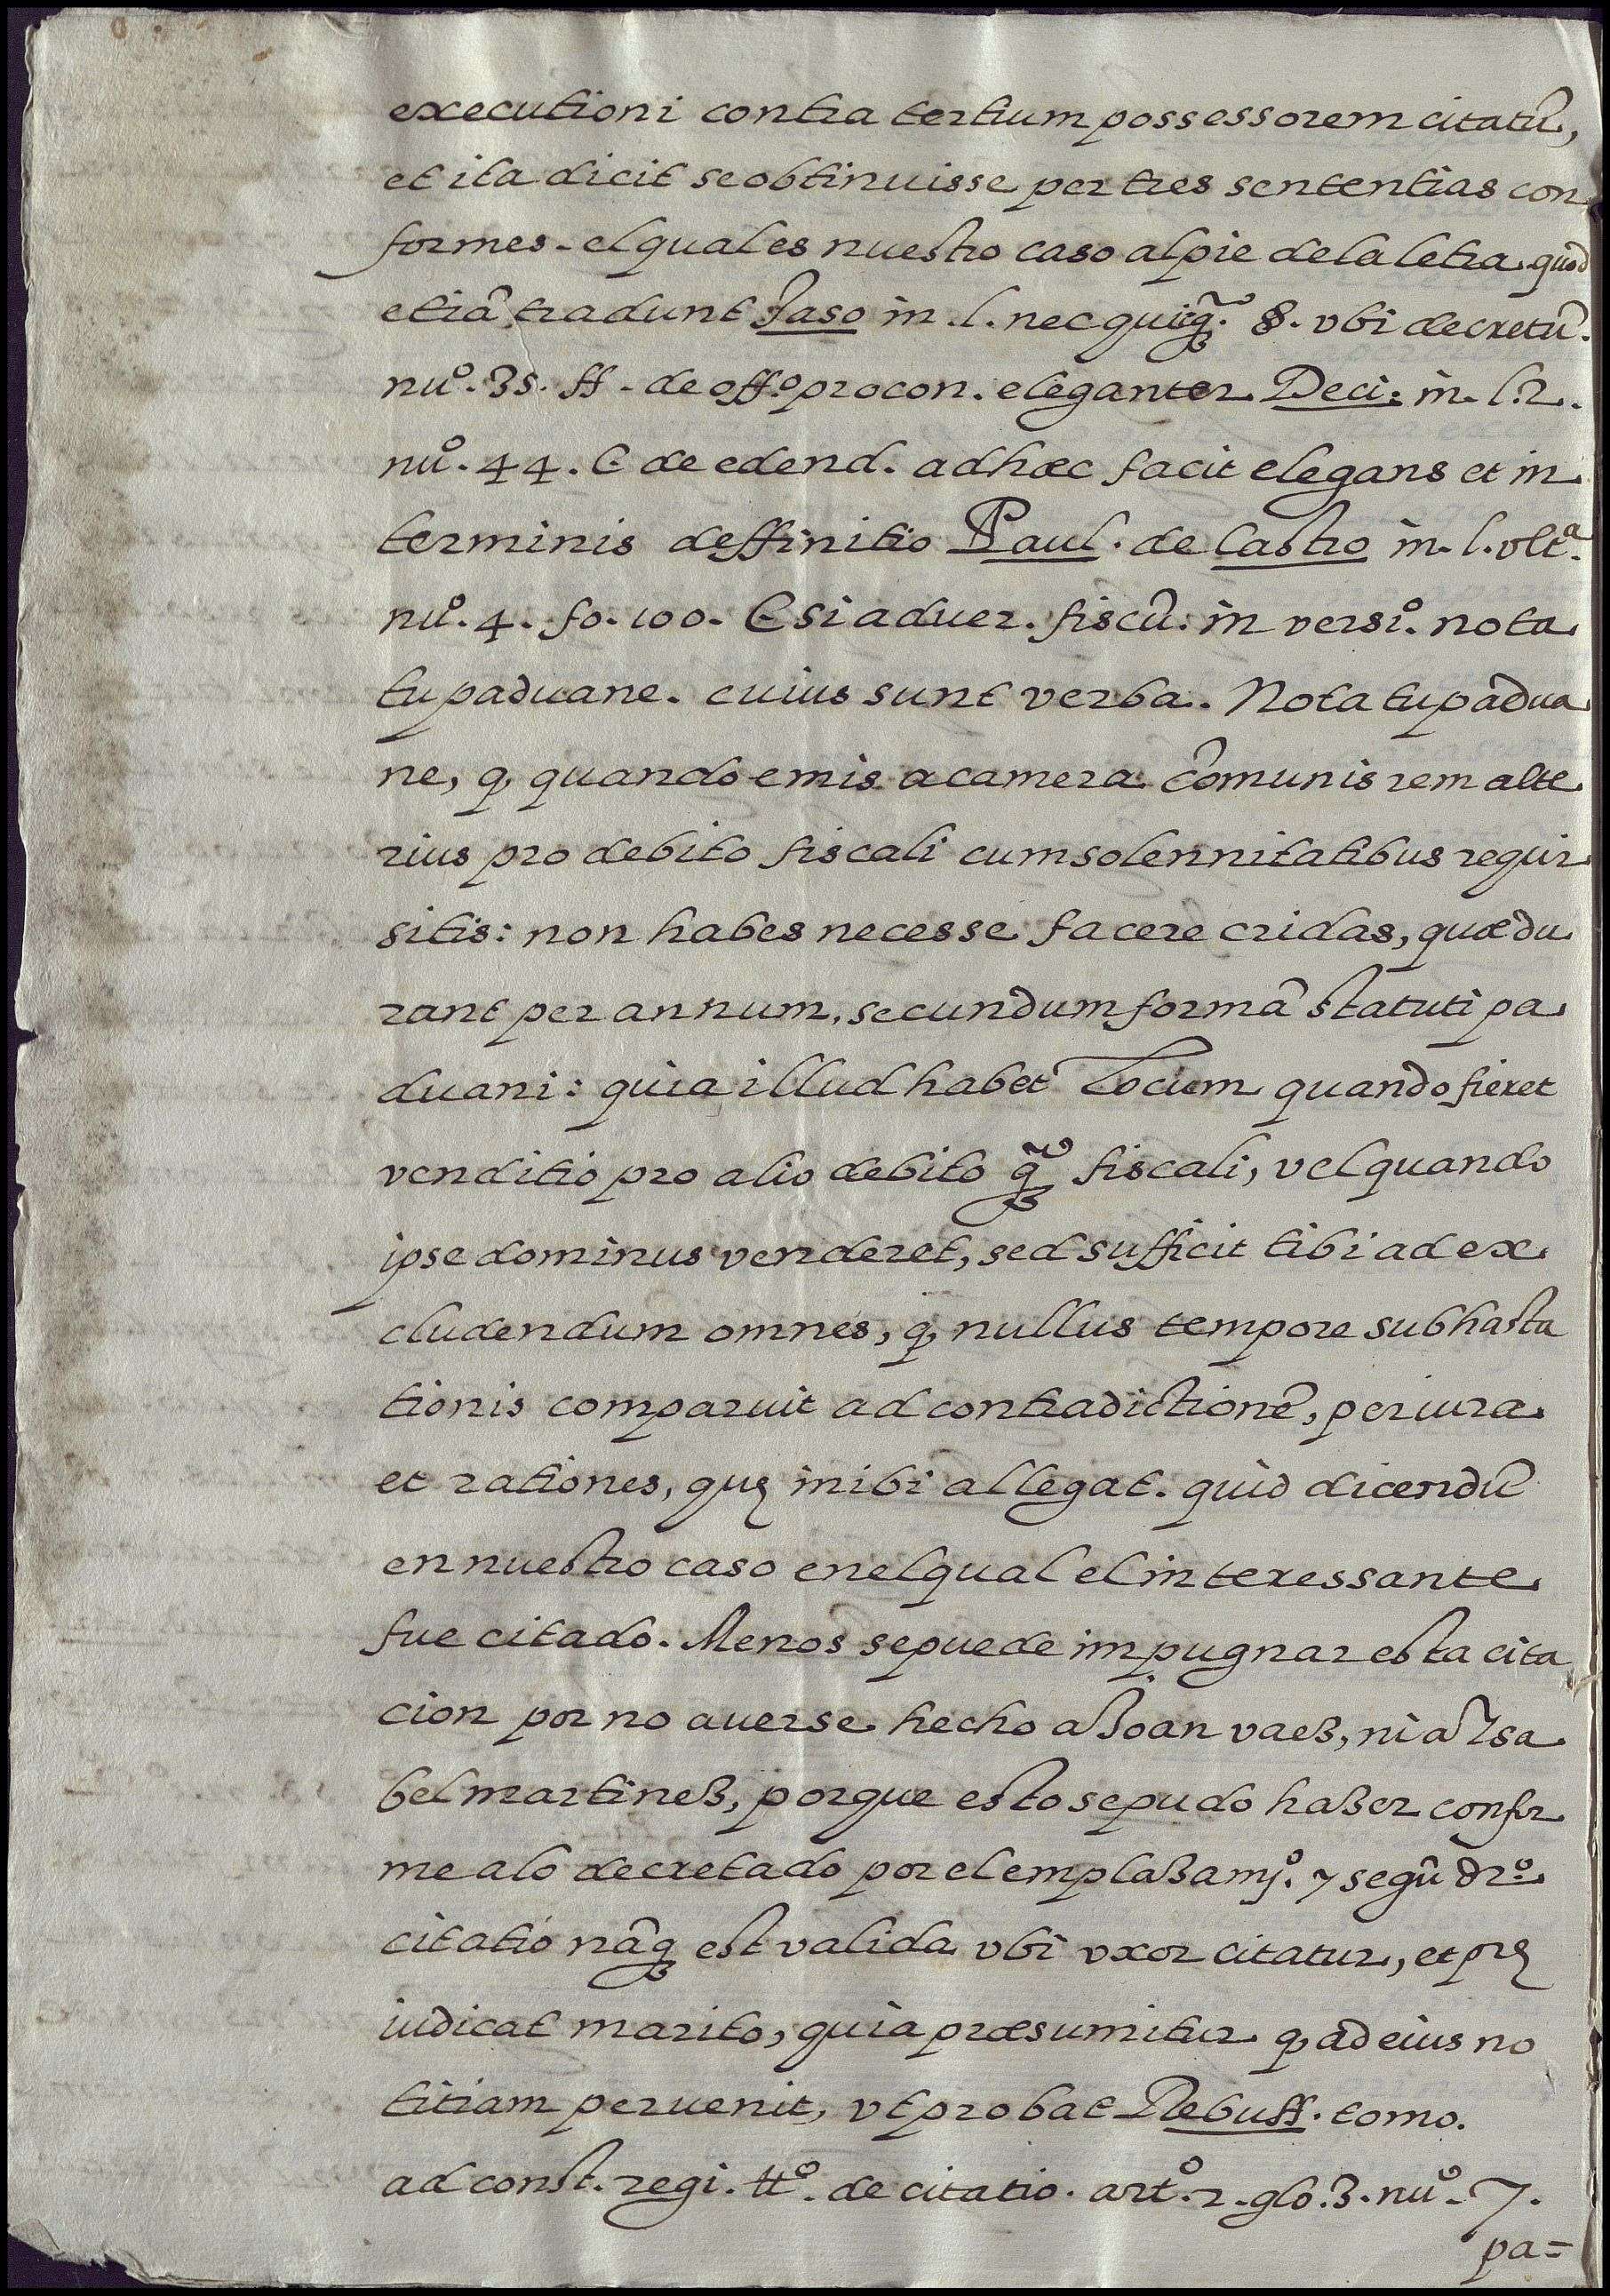 executioni contra tertium possessorem citatũ,
et ita dicit se obtinuisse per tres sententias con
formes - el qual es nuestro caso al pie de la letra. quod
etiã tradunt Jaso in .l. nec quicq̃. §. vbi decretũ.
nuº. 35. ff. de offº procon. eleganter Deci: in. l. 2.
nuº. 44. C de edend. ad hæc facit elegans et in
terminis deffinitio Paul. de Castro in. l. vltª.
nuº. 4. fo. 100. C si aduer. fiscũ. in versiº. nota
tu paduane. cuius sunt verba. Nota tu padua
ne, q, quando emis a camera cõmunis rem alte
rius pro debito fiscali cum solennitatibus requi
sitis: non habes necesse facere cridas, quæ du
rant per annum, secundum formã statuti pa
duani: quia illud habet locum quando fieret
venditio pro alio debito q̃ fiscali, vel quando
ipse dominus venderet, sed sufficit tibi ad ex
cludendum omnes, q, nullus tempore subhasta
tionis comparuit ad contradictionẽ, per iura
et rationes, quę inibi allegat. quid dicendũ
en nuestro caso en el qual el interessante
fue citado. Menos se puede impugnar esta cita
cion por no auerse hecho a Joan vaez, ni a Isa
bel martinez, porque esto se pudo hazer confor
me a lo decretado por el emplazamjº. y segũ drº.
citatio nãq; est valida vbi vxor citatur, et prę
iudicat marito, quia præsumitur q, ad eius no
titiam peruenit, vt probat Rebuff. tomo.
ad const. regi. ttº. de citatio. artº. 2. glo. 3. nuº. 7.
pa=